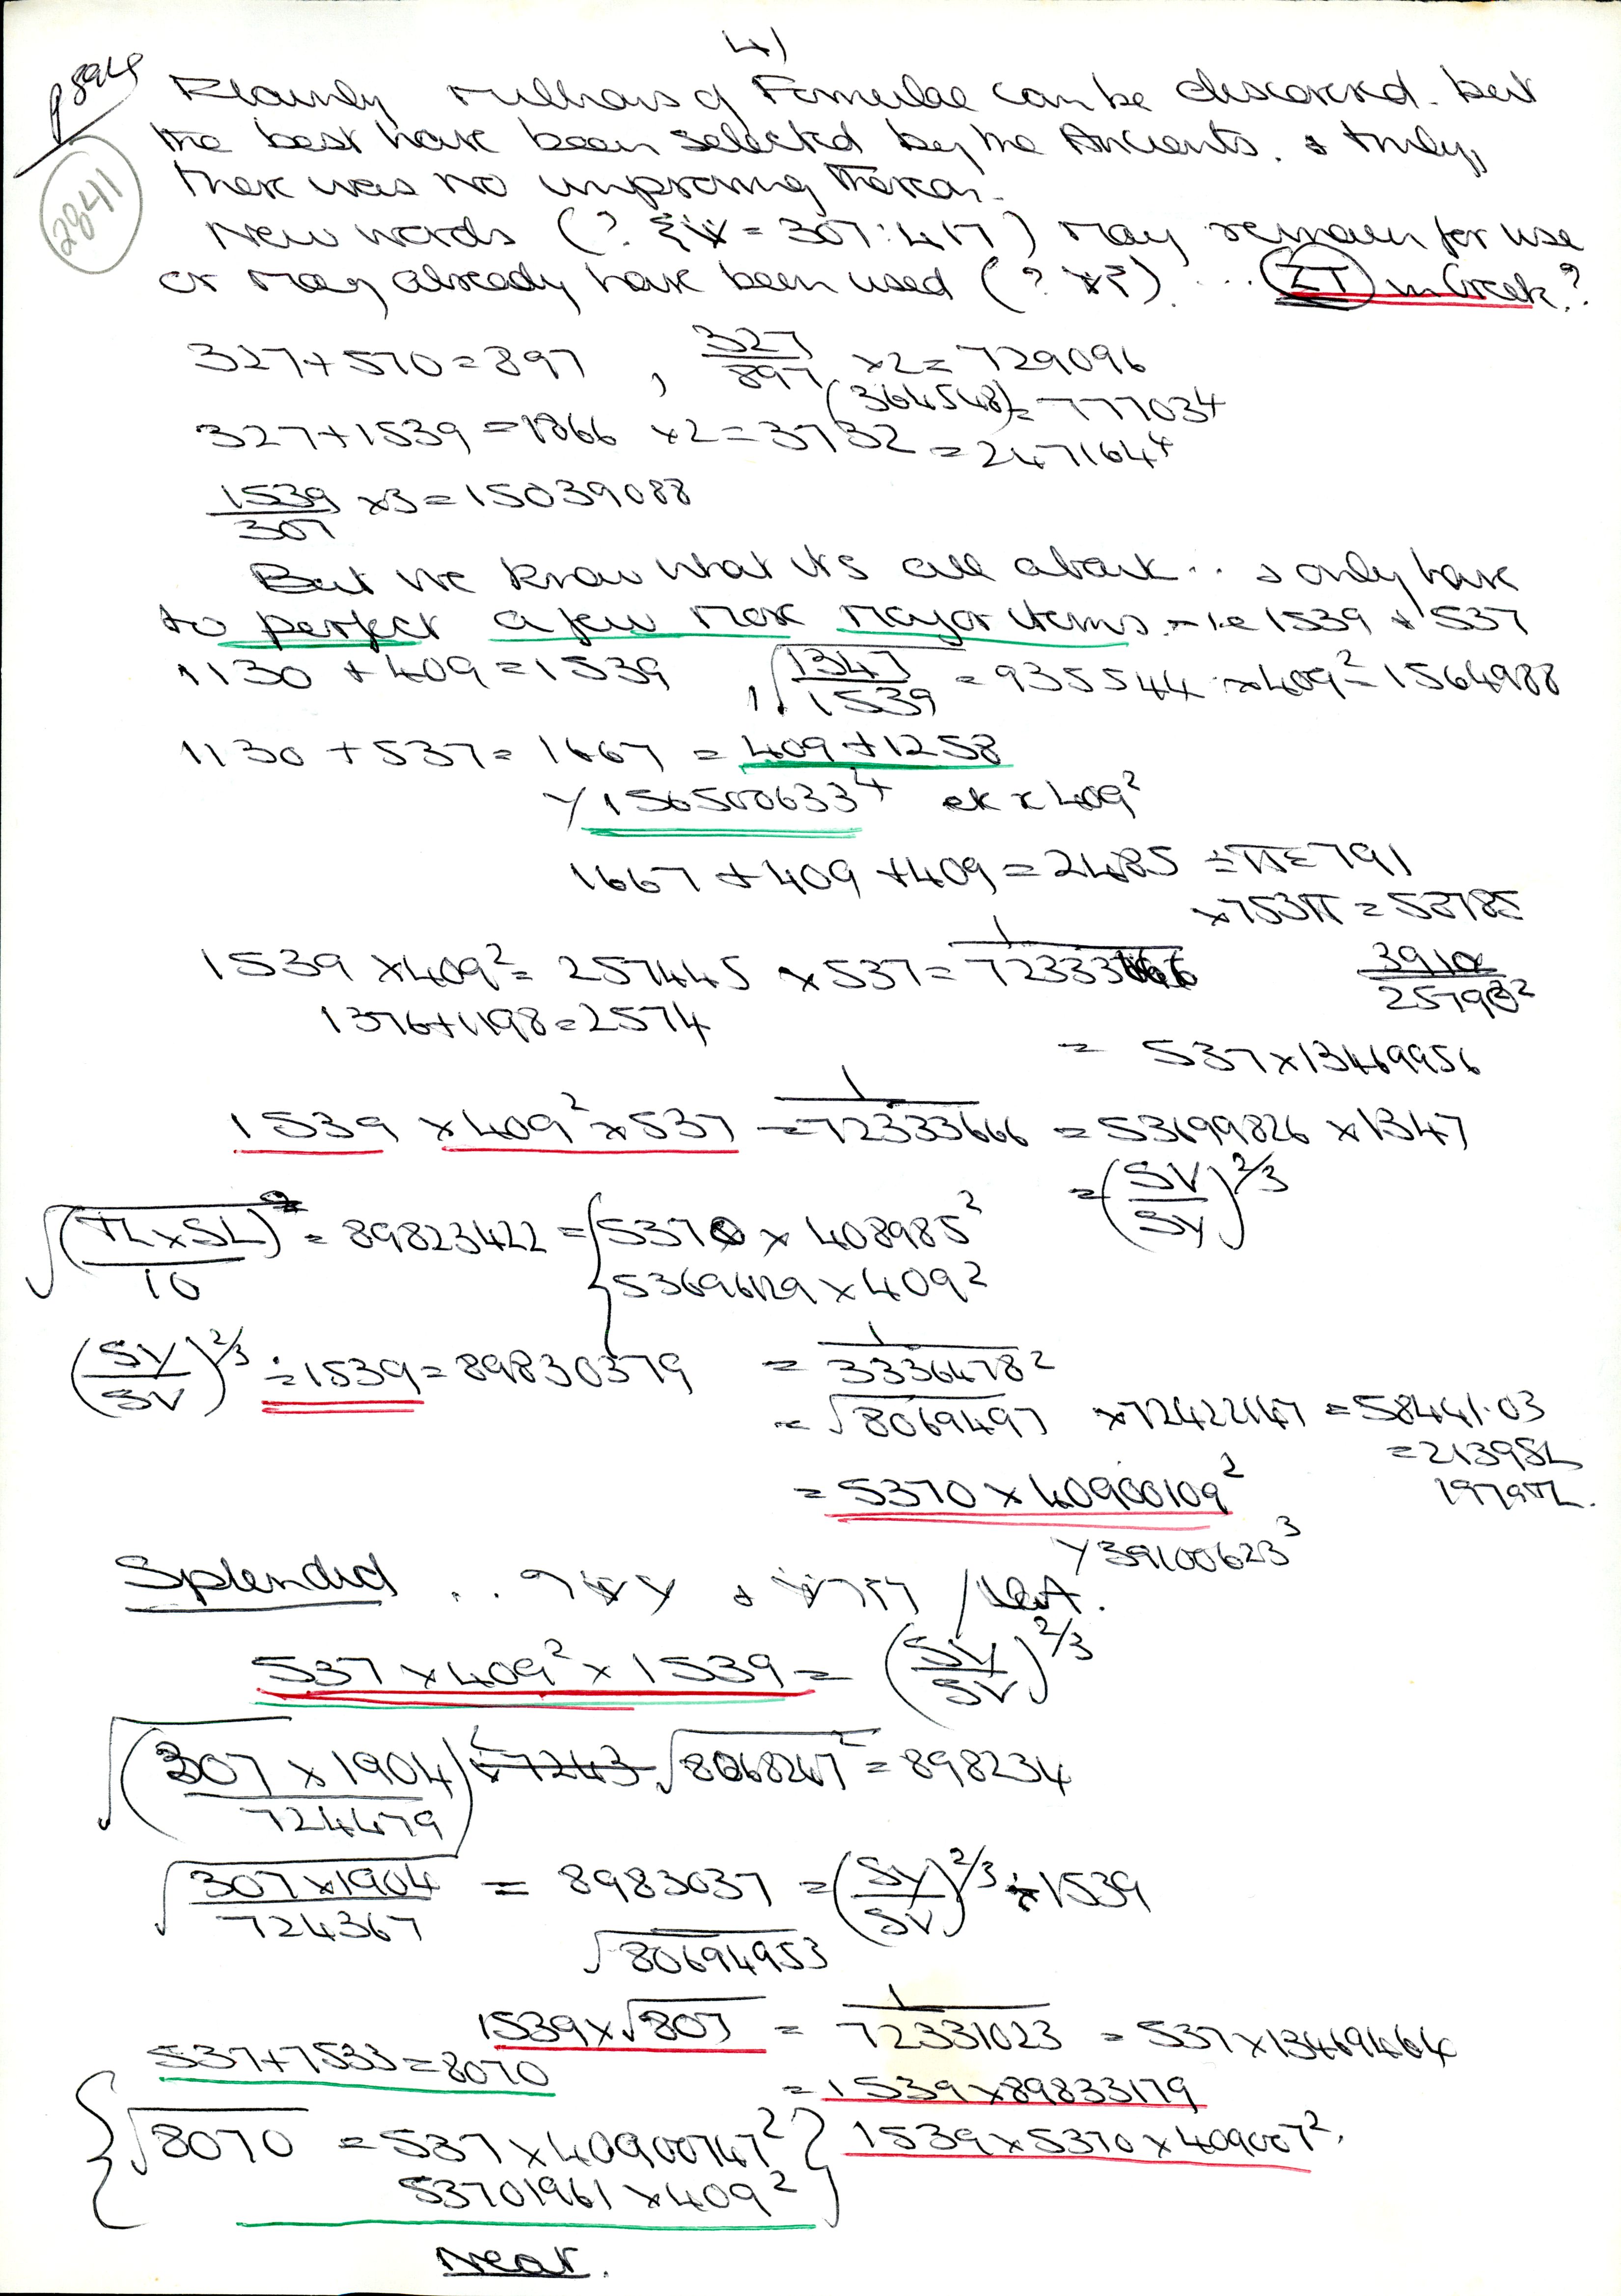 4)
p894
2841
Plainly millions of Formulae can be discovered. but
the best have been selected by the Ancients. & truly,
there was no improving thereon.
New words (? = 307:417) may remain for use
or may already have been used (? ) ... ΣΤ in Greek?
327+570=897 , 327/897 ×2=729096
(364548)=777034
327+1539=1866 ×2=3732 =247164⁴
1539/307 ×3=15039088
But we know what it's all about... & only have
to perfect a few more major items. - i.e 1539 & 537
1130 + 409=1539 , √1347/1539 =935544 ×409²=1564988
1130 + 537= 1667 = 409+1258
Y 156500633⁴ ek x 409²
1667 + 409 +409=2485 ÷π=791
×753π=58785
1539 ×409²= 257445 ×537= 1/72333666
3910/25793²
1376+1198=2574
= 537×13469956
1539 ×409²×537 =1/72333666 =53699826 ×1347
=(SV/SY)^2/3
√(TL×SL)²/10 = 89823422 = {5370 × 408985²
5369619×409²
(SY/SV)^2/3 ÷1539=89830379 = 1/3336478²
= √8069497 ×72422147 =58441.03
=2139SL
1979TL.
= 5370×40900109²
Y39100623³
Splendid ..
537×409²×1539= (SY/SV)^2/3
√(307×1904/724479)² √8068267² = 898234
√307×1904/724367 = 8983037 =(SY/SV)^2/3 ÷1539
√80694953
1539×√807 = 1/72331023 = 537×13469464
537+7533=8070
=1539×89833179
{√8070 =537×40900747²} 1539×5370×409007².
53701961×409²
Near.